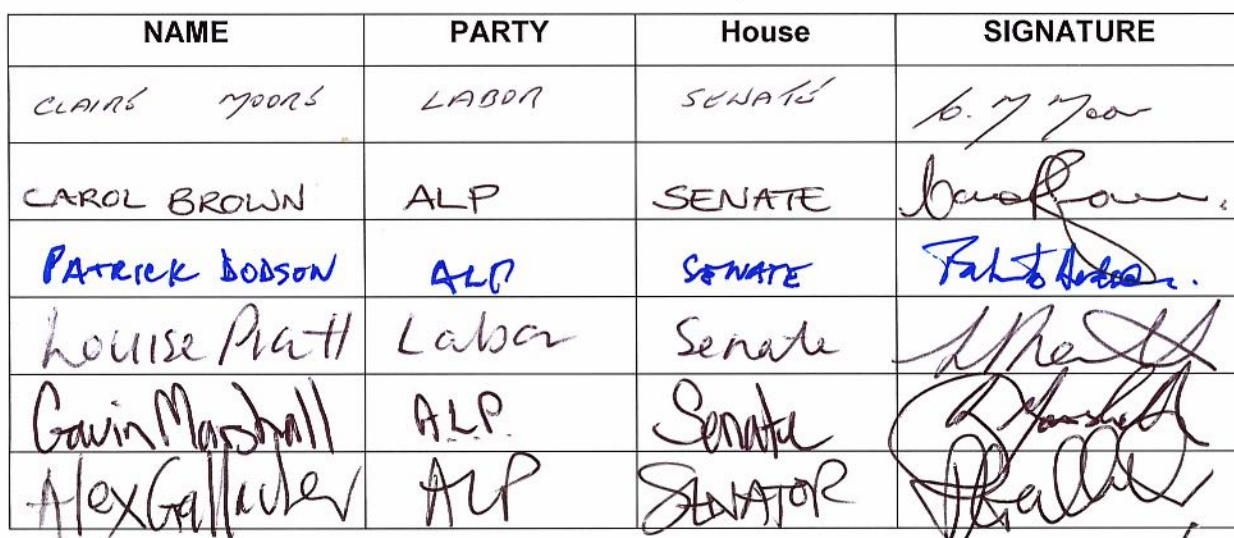 NAME PARTY House SIGNATURE
CLAIRE MOORE LABOR SENATE C. M Moore
CAROL BROWN ALP SENATE Carol Brown.
PATRICK DODSON ALP SENATE
Louise Pratt Labor Senate L Pratt
Gavin Marshall A.L.P. Senate G Marshall
Alex Gallacher ALP SENATOR